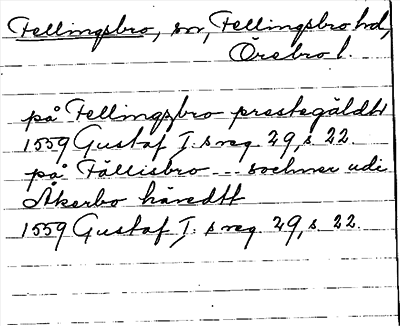 Fellingsbro, sn, Fellingsbro hd,
Örebro l.
på Fellingzbro prestegäldt
1559 Gustaf I:s reg. 29, s. 22.
på Fällisbro --- sochner udi
Åkerbo häredtt
1559 Gustaf I:s reg. 29, s. 22.